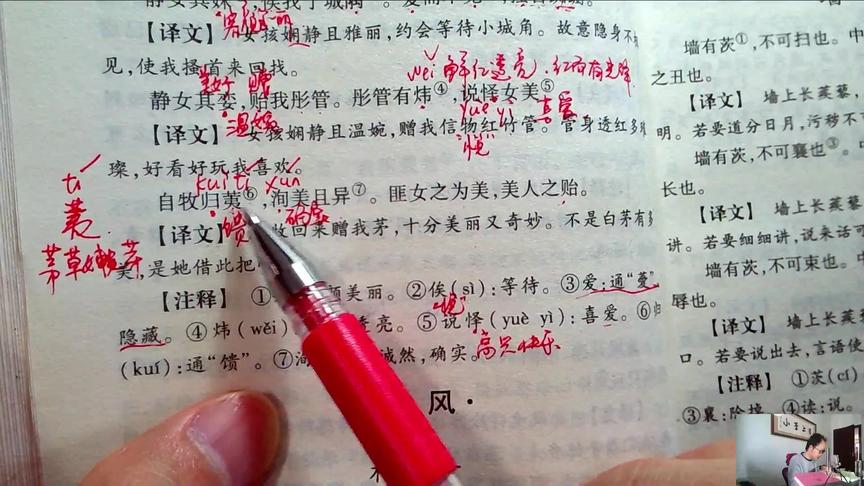 静女其姝，俟我于城隅。爱而不见，
害怕
【译文】女孩娴静且雅丽，约会等待小城角。故意隐身不
见，使我搔首来回找。
美好 赠
wěi 鲜红透亮
静女其娈，贻我彤管。彤管有炜④，说怿女美⑤。
温婉
yuè yì 喜爱
【译文】女孩娴静且温婉，赠我信物红竹管。管身透红多
“悦”
璨，好看好玩我喜欢。
kuì tí xún
自牧归荑⑥，洵美且异⑦。匪女之为美，美人之贻。
馈 确实
tí
荑
茅草嫩芽
【译文】收回来赠我茅，十分美丽又奇妙。不是白茅有多
美，是她借此把
【注释】①美丽。②俟（sì）：等待。③爱：通“薆”
“悦”
隐藏。④炜（wěi）透亮。⑤说怿（yuè yì）：喜爱。⑥归
高兴快乐
（kuí）：通“馈”。⑦诚然，确实。
风·
墙有茨①，不可扫也。中
之丑也。
【译文】墙上长蒺藜，
明。若要道分日月，污秽不
墙有茨，不可襄也③。中
长也。
【译文】墙上长蒺藜，
讲。若要细细讲，说来话
墙有茨，不可束也。中
辱也。
【译文】墙上长蒺藜，
口。若要说出去，言语使
【注释】①茨（cí）
③襄：除掉。④读：说。